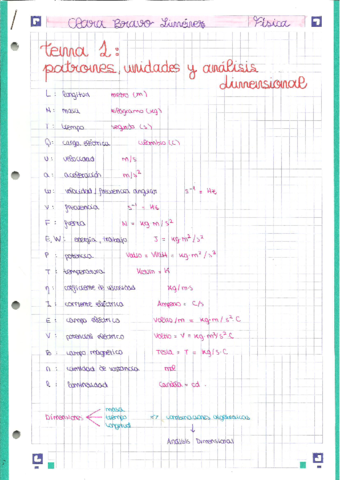 Clara Bravo Física
tema 1:
patrones, unidades y análisis
dimensional
L: longitud metro (m)
M: masa kilogramo (kg)
T: tiempo segundo (s)
Q: carga eléctrica culombio (C)
v: velocidad m/s
a: aceleración m/s²
ω: velocidad/frecuencia angular s⁻¹ = Hz
ν: frecuencia s⁻¹ = Hz
F: fuerza N = kg·m/s²
E, W: energía, trabajo J = kg·m²/s²
P: potencia = kg·m²/s³
T: temperatura Kelvin = K
η: coeficiente de viscosidad kg/m·s
I: corriente eléctrica Amperio = C/s
E: campo eléctrico Voltio/m = kg·m/s²·C
V: potencial eléctrico Voltio = V = kg·m²/s²·C
B: campo magnético Tesla = T = kg/s·C
n: cantidad de sustancia mol
l: luminosidad Candela = cd
masa
Dimensiones tiempo combinaciones algebraicas
longitud ↓
Análisis Dimensional